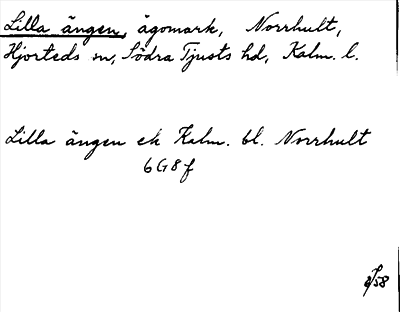 Lilla ängen, ägomark, Norrhult,
Hjorteds sn, Södra Tjusts hd, Kalm. l.
Lilla ängen ek Kalm. bl. Norrhult
6G8f